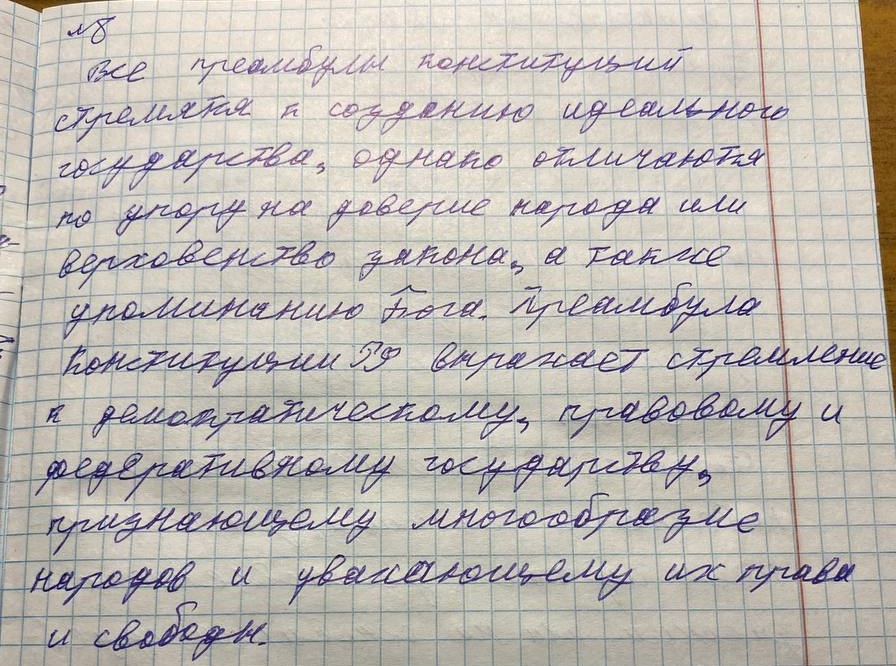 №8
Все преамбулы конституций
стремятся к созданию идеального
государства, однако отличаются
по упору на доверие народа или
верховенство закона, а также
упоминанию Бога. Преамбула
Конституции РФ выражает стремление
к демократическому, правовому и
федеративному государству,
признающему многообразие
народов и уважающему их права
и свободы.